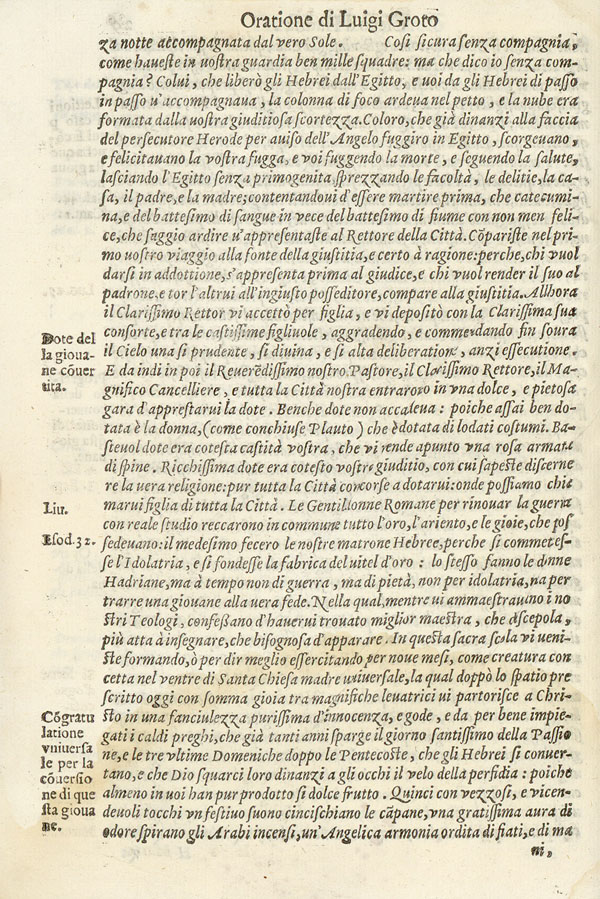 Oratione di Luigi Groto
za notte accompagnata dal vero Sole. Così sicura senza compagnia,
come haueste in uostra guardia ben mille squadre: ma che dico io senza com-
pagnia? Colui, che liberò gli Hebrei dall'Egitto, e uoi da gli Hebrei di passo
in passo u'accompagnaua, la colonna di foco ardeua nel petto, e la nube era
formata dalla uostra giuditiosa scortezza. Coloro, che già dinanzi alla faccia
del persecutore Herode per auiso dell'Angelo fuggiro in Egitto, scorgeuano,
e felicitauano la vostra fugga, e voi fuggendo la morte, e seguendo la salute,
lasciando l'Egitto senza primogenita, sprezzando le facoltà, le delitie, la ca-
sa, il padre, e la madre; contentandoui d'essere martire prima, che catecumi-
na, e del battesimo di sangue in vece del battesimo di fiume con non men feli-
ce, che saggio ardire u'appresentaste al Rettore della Città. Cōpariste nel pri-
mo uostro viaggio alla fonte della giustitia, e certo à ragione: perche, chi vuol
darsi in addottione, s'appresenta prima al giudice, e chi vuol render il suo al
padrone, e tor l'altrui all'ingiusto posseditore, compare alla giustitia. Allhora
il Clarissimo Rettor vi accettò per figlia, e vi depositò con la Clarissima sua
consorte, e tra le castissime figliuole, aggradendo, e commendando fin soura
Dote del
la gioua-
ne cōuer
tita.
il Cielo una sì prudente, sì diuina, e sì alta deliberation, anzi essecutione.
E da indi in poi il Reuerēdissimo nostro Pastore, il Clarissimo Rettore, il Ma-
gnifico Cancelliere, e tutta la Città nostra entraroro in vna dolce, e pietosa
gara d'apprestarui la dote. Benche dote non accadeua: poiche assai ben do-
tata è la donna, (come conchiuse Plauto) che è dotata di lodati costumi. Ba-
steuol dote era cotesta castità vostra, che vi rende apunto vna rosa armata
di spine. Ricchissima dote era cotesto vostro giuditio, con cui sapeste discerne
re la uera religione: pur tutta la Città concorse a dotarui: onde possiamo chia
marui figlia di tutta la Città. Le Gentildonne Romane per rinouar la guerra
Liu.
con reale studio reccarono in commune tutto l'oro, l'ariento, e le gioie, che pos
Esod. 32.
sedeuano: il medesimo fecero le nostre matrone Hebree, perche si commetes-
se l'Idolatria, e si fondesse la fabrica del uitel d'oro: lo stesso fanno le donne
Hadriane, ma à tempo non di guerra, ma di pietà, non per idolatria, na per
trarre una giouane alla uera fede. Nella qual, mentre ui ammaestrauano i no
stri Teologi, confessano d'hauerui trouato miglior maestra, che discepola,
più atta à insegnare, che bisognosa d'apparare. In questa sacra scola vi ueni-
ste formando, ò per dir meglio essercitando per noue mesi, come creatura con
cetta nel ventre di Santa Chiesa madre uniuersale, la qual doppò lo spatio pre
scritto oggi con somma gioia tra magnifiche leuatrici ui partorisce a Chri-
Cōgratu
latione
vniuersa
le per la
cōuersio
ne di que
sta gioua
ne.
sto in una fanciulezza purissima d'innocenza, e gode, e da per bene impie-
gati i caldi preghi, che già tanti anni sparge il giorno santissimo della Passio
ne, e le tre vltime Domeniche doppo le Pentecoste, che gli Hebrei si conuer-
tano, e che Dio squarci loro dinanzi a gli occhi il velo della perfidia: poiche
almeno in uoi han pur prodotto sì dolce frutto. Quinci con vezzosi, e vicen-
deuoli tocchi vn festiuo suono cincischiano le cāpane, vna gratissima aura di
odore spirano gli Arabi incensi, un'Angelica armonia ordita di fiati, e di ma
ni,